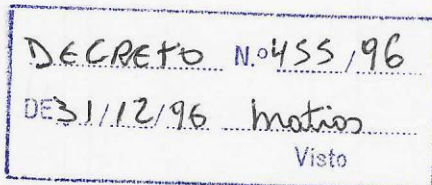 DECRETO N.º 455/96
DE 31/12/96 Matios
Visto